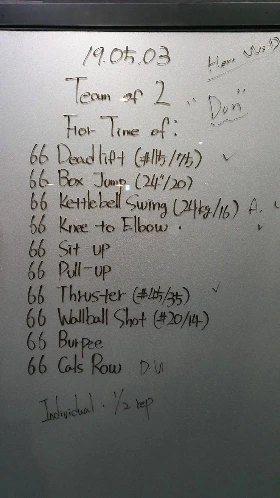 19.05.03
Hero WOD
Team of 2
"Don"
For Time of:
66 Deadlift (#115/75)
66 Box Jump (24"/20)
66 Kettlebell Swing (24kg/16) A.
66 Knee to Elbow.
66 Sit up
66 Pull-up
66 Thruster (#45/35)
66 Wallball Shot (#20/14)
66 Burpee
66 Cals Row D.U
Individual. 1/2 rep